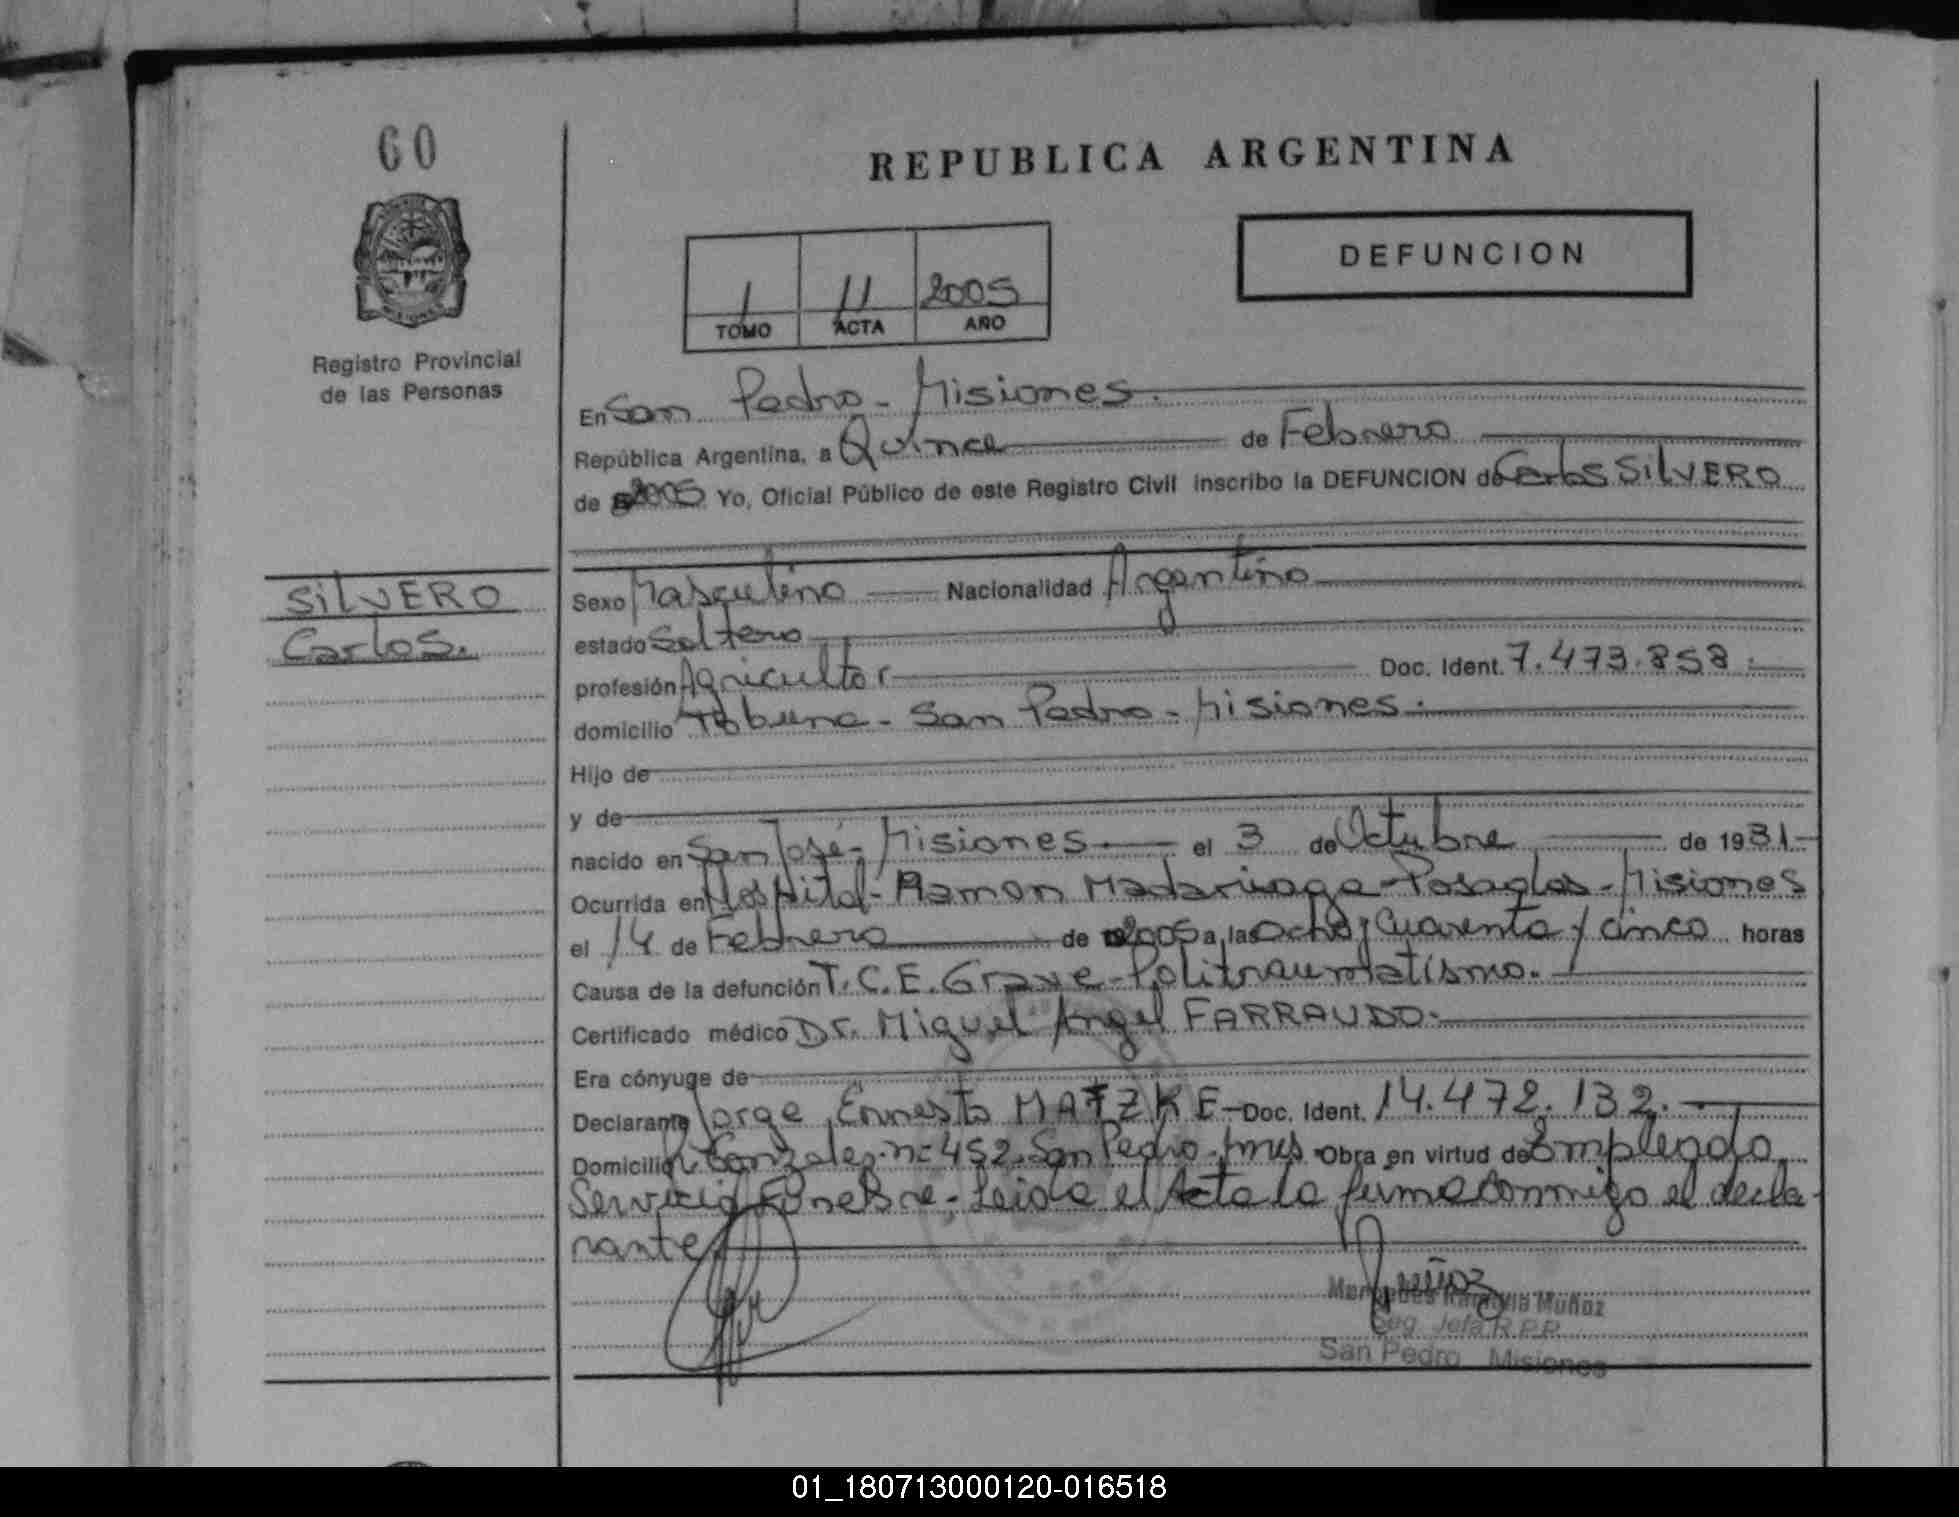 60
REPUBLICA ARGENTINA
DEFUNCION
1 11 2005
TOMO ACTA AÑO
Registro Provincial
de las Personas
En San Pedro - Misiones.
República Argentina, a Quince de Febrero
de 2005 Yo, Oficial Público de este Registro Civil inscribo la DEFUNCION de Carlos SilVERO
SilVERO
Carlos.
Sexo Masculino Nacionalidad Argentino
estado Soltero
profesión Agricultor Doc. Ident. 7.473.858.
domicilio Tobuna - San Pedro - Misiones.
Hijo de
y de
nacido en San José - Misiones. el 3 de Octubre de 1931
Ocurrida en Hospital - Ramon Madariaga - Posadas - Misiones
el 14 de Febrero de 2005 a las Ocho y Cuarenta y cinco horas
Causa de la defunción T.C.E. Grave - Politraumatismo.
Certificado médico Dr. Miguel Angel FARRAUDO.
Era cónyuge de
Declarante Jorge Ernesto MATZKE - Doc. Ident. 14.472.132.
Domicilio Gonzales nº 452. San Pedro - mnes Obra en virtud de Empleado
Servicio Funebre - Leida el Acta la firma conmigo el decla
rante
Muñoz
Mercedes Ramona Muñoz
Seg. Jefa R.P.P.
San Pedro Misiones
01_180713000120-016518